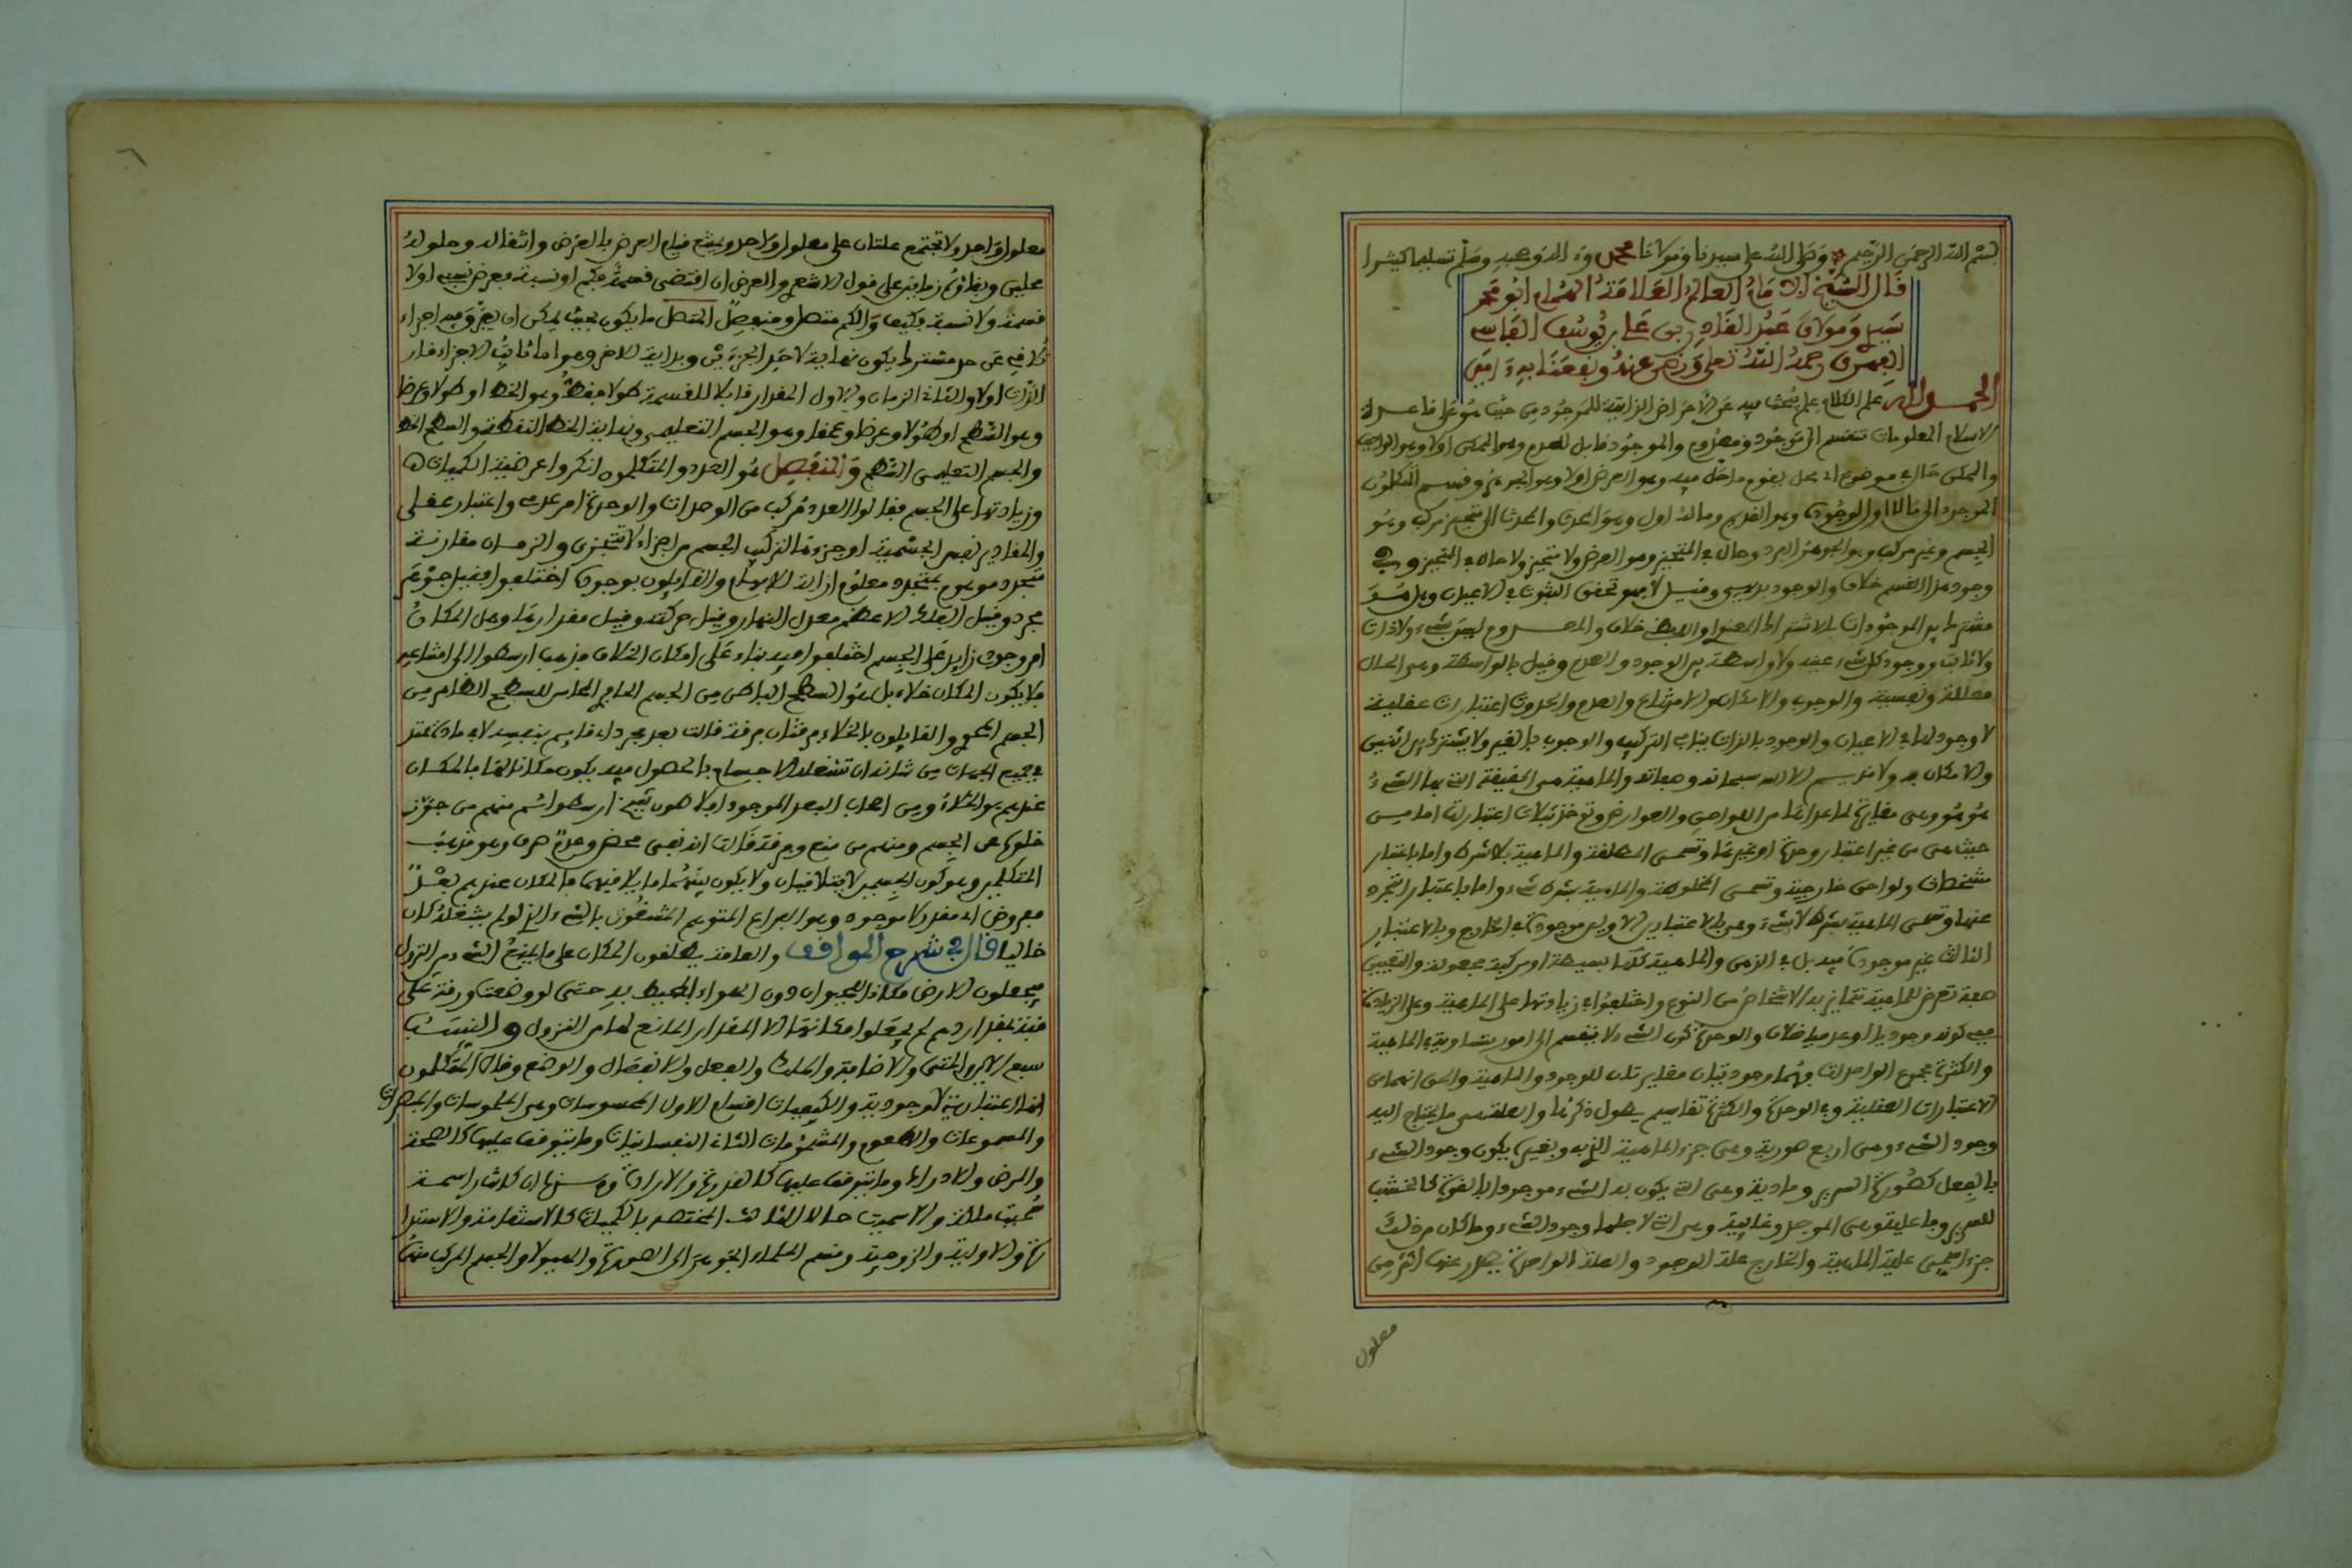 بسم الله الرحمن الرحيم وصلى الله على سيدنا ومولانا محمد وءاله وصحبه وسلم تسليما كثيرا
قال الشيخ الامام العالم العلامة الهمام ابو محمد
سيدي ومولاي عبد القادر بن علي بن يوسف الفاسي
الفهري رحمه الله تعلى ورضي عنه ونفعنا به ءامين
الحمد لله علم الكلام علم يبحث فيه عن الاعراض الذاتية للموجود من حيث هو على قاعدة
الاسلام المعلومات تنقسم الى موجود ومعدوم والموجود قابل للعدم وهو الممكن اولا وهو الواجب
والممكن حال في موضوع اي محل يقوم ما حل فيه وهو العرض اولا وهو الجوهر وقسم المتكلمون
الموجود الى ما لا اول لوجوده وهو القديم وما له اول وهو الحادث والحادث الى متحيز مركب وهو
الجسم وغير مركب وهو الجوهر الفرد وحال في المتحيز وهو العرض ولا متحيز ولا حال في المتحيز وفي
وجود هذا القسم خلاف والوجود بديهي وقيل لا وهو تحقق الثبوت في الاعيان وهل هو
مشترك بين الموجودات بالاشتراك المعنوي او اللفظي خلاف والمعدوم ليس بشيء ولا ذات
ولا ثابت ووجود كل شيء عينه ولا واسطة بين الوجود والعدم وقيل بالواسطة وهي الحال
معللة ونفسية والوجوب والامكان والامتناع والعدم والحدوث اعتبارات عقلية
لا وجود لها في الاعيان والوجود بالذات ينافي التركيب والوجوب بالغير ولا يشترك بين اثنين
والامكان ولا قديم الا الله سبحانه وصفاته والماهية هي الحقيقة التي بها الشيء
هو هو وهي مغايرة لما عداها من اللواحق والعوارض وتوخذ بثلاث اعتبارات اما من
حيث هي من غير اعتبار وحدة او غيرها وتسمى المطلقة والماهية بلا شرط واما باعتبار
مشخصات ولواحق خارجية وتسمى المخلوطة والماهية بشرط شيء واما باعتبار التجرد
عنها وتسمى الماهية بشرط لا شيء وهي بالاعتبارين الاولين موجودة في الخارج وبالاعتبار
الثالث غير موجودة فيه بل في الذهن والماهية كلها بسيطة او مركبة مجعولة والتعيين
صفة تعرض للماهية تتمايز به الاشخاص من النوع واختلفوا في زيادتها على الماهية وعلى الزيادة
ففي كونه وجوديا او عدميا خلاف والوحدة كون الشيء لا ينقسم الى امور متساوية في الماهية
والكثرة مجموع الواحدات وهما وجوديتان مغايرتان للوجود والماهية والحق انهما من
الاعتبارات العقلية وفي الوحدة والكثرة تقاسيم يطول ذكرها والعلة هي ما يحتاج اليه
وجود الشيء وهي اربع صورية وهي جزء الماهية الذي به وبغيره يكون وجود الشيء
بالفعل كصورة السرير ومادية وهي التي يكون بها الشيء موجودا بالقوة كالخشب
للسرير وفاعلية وهي الموجد وغائية وهي التي لاجلها وجود الشيء وما كان من ذلك
جزءا يسمى علة الماهية والخارج علة الوجود والعلة الواحدة يصدر عنها اكثر من
معلول
معلول واحد ولا تجتمع علتان على معلول واحد ويمتنع قيام العرض بالعرض وانتقاله وحلوله
محلين وبقاؤه زمانين على قول الاشعري والعرض ان اقتضى قسمة فكم او نسبة فعرض نسبي اولا
قسمة ولا نسبة فكيف والكم متصل ومنفصل المتصل ما يكون بحيث يمكن ان يفرض فيه اجزاء
تتلاقى عن حد مشترك يكون نهاية لاحد الجزءين وبداية للاخر وهو اما ثابت الاجزاء قار
الذات اولا والثاني الزمان والاول المقدار قابلا للقسمة طولا فقط وهو الخط او طولا وعرضا
وهو السطح او طولا وعرضا وعمقا وهو الجسم التعليمي ونهاية الخط النقطة والسطح الخط
والجسم التعليمي السطح والمنفصل هو العدد والمتكلمون انكروا عرضية الكميات
وزيادتها على الجسم فقالوا العدد مركب من الوحدات والوحدة امر عدمي واعتبار عقلي
والمقادير نفس الجسمية او جزءها لتركيب الجسم من اجزاء لا تتجزى والزمان مقارنة
متجدد موهوم بمتجدد معلوم ازالة للابهام والقائلون بوجوده اختلفوا فقيل جوهر
مجرد وقيل الفلك الاعظم معدل النهار وقيل حركته وقيل مقدارها وهل المكان
امر وجودي زايد على الجسم اختلفوا فيه بناء على امكان الخلاء فذهب ارسطو الى امتناعه
فلا يكون المكان خلاء بل هو السطح الباطن من الجسم الحاوي المماس للسطح الظاهر من
الجسم المحوي والقايلون بالخلاء فرقتان فرقة قالت بعد مجرد اي قايم بنفسه لا في مادة ممتد
في جميع الجهات من شانه ان تشغله الاجسام بالحصول فيه يكون مكانا لها فالمكان
عندهم هو الخلاء ومن اصحاب البعد الموجود افلاطون شيخ ارسطو ثم منهم من جوز
خلوه عن الجسم ومنهم من منع وفرقة قالت انه نفي محض وعدم صرف وهو مذهب
المتكلمين وهو كون الجسمين لا يتلاقيان ولا يكون بينهما ما يلاقيهما فالمكان عندهم بعد
مفروض اي مقدر لا موجود وهو الفراغ المتوهم المشغول بالشيء الذي لو لم يشغله كان
خاليا قال في شرح المواقف والعامة يطلقون المكان على ما يمنع الشيء من النزول
فيجعلون الارض مكانا للحيوان دون الهواء المحيط به حتى لو وضعت ورقة على
قبة بمقدار درهم لم يجعلوا مكانها الا المقدار المانع لها من النزول والنسب
سبع الاين والمتى والاضافة والملك والفعل والانفعال والوضع وقال المتكلمون
انها اعتبارية لا وجودية والكيفيات اقسام الاول المحسوسات وهي الملموسات والمبصرات
والمسموعات والطعوم والمشمومات الثاني النفسانيات وما يتوقف عليها كالصحة
والمرض والادراك وما يتوقف عليها كالقدرة والارادة وهذه ان كانت راسخة
سميت ملكة والا سميت حالا الثالث المختص بالكميات كالاستقامة والاستدا
رة والاولية والزوجية وقسم الحكماء الجوهر الى الصورة والهيولا والجسم المركب منهما